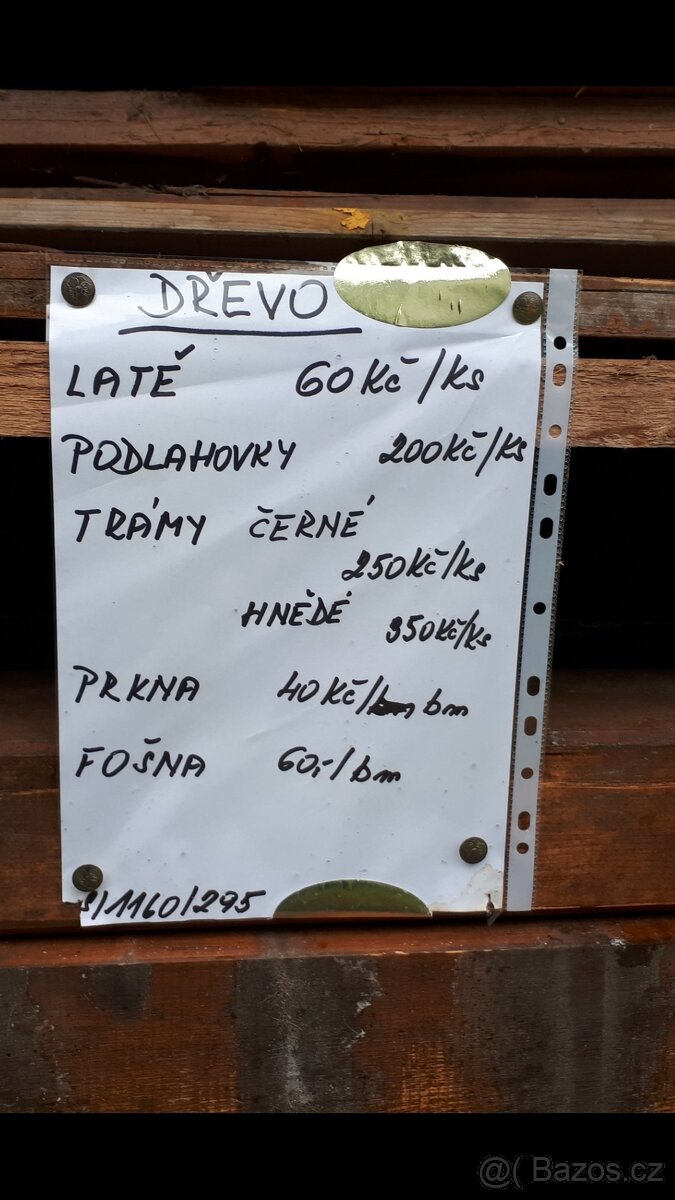 DŘEVO
LATĚ 60Kč/ks
PODLAHOVKY 200Kč/ks
TRÁMY ČERNÉ
250Kč/ks
HNĚDÉ 350Kč/ks
PRKNA 40Kč/bm bm
FOŠNA 60,-/bm
/1160/295
@( Bazos.cz